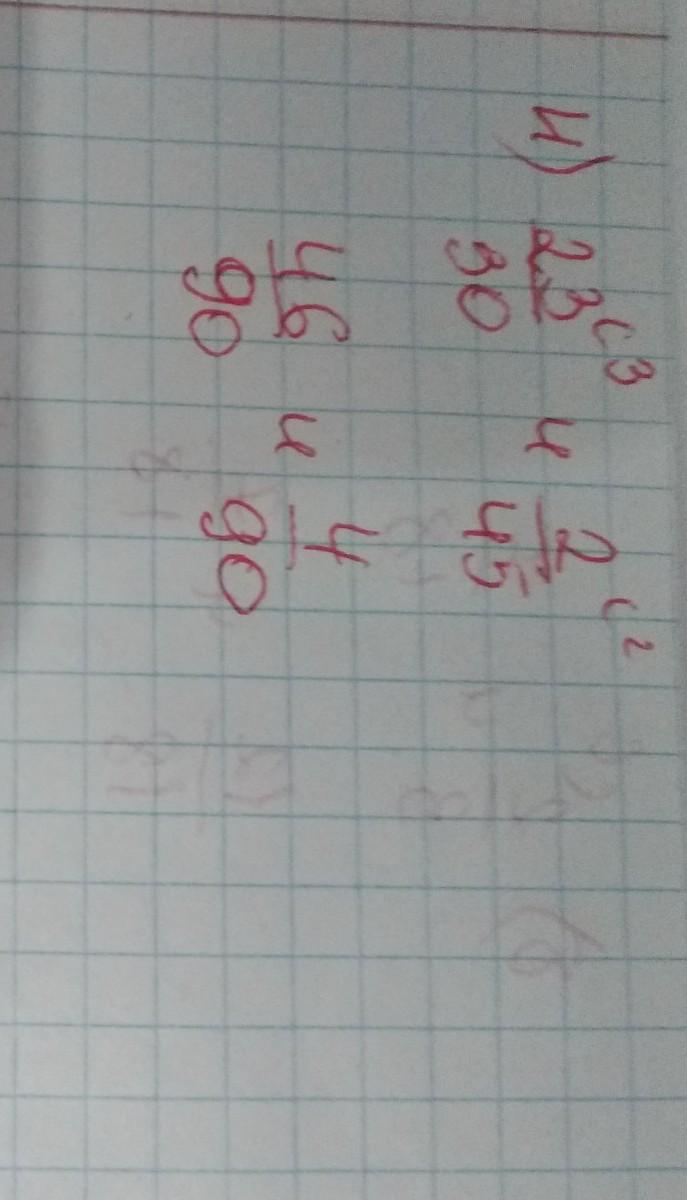 и) 23/30 (3 и 2/45 (2
46/90 и 4/90